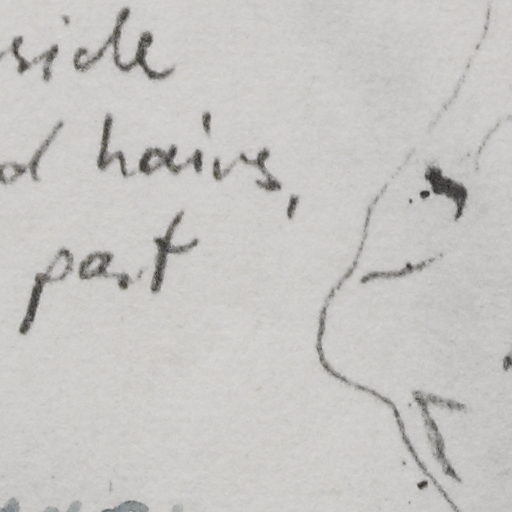 side
d hairs,
part